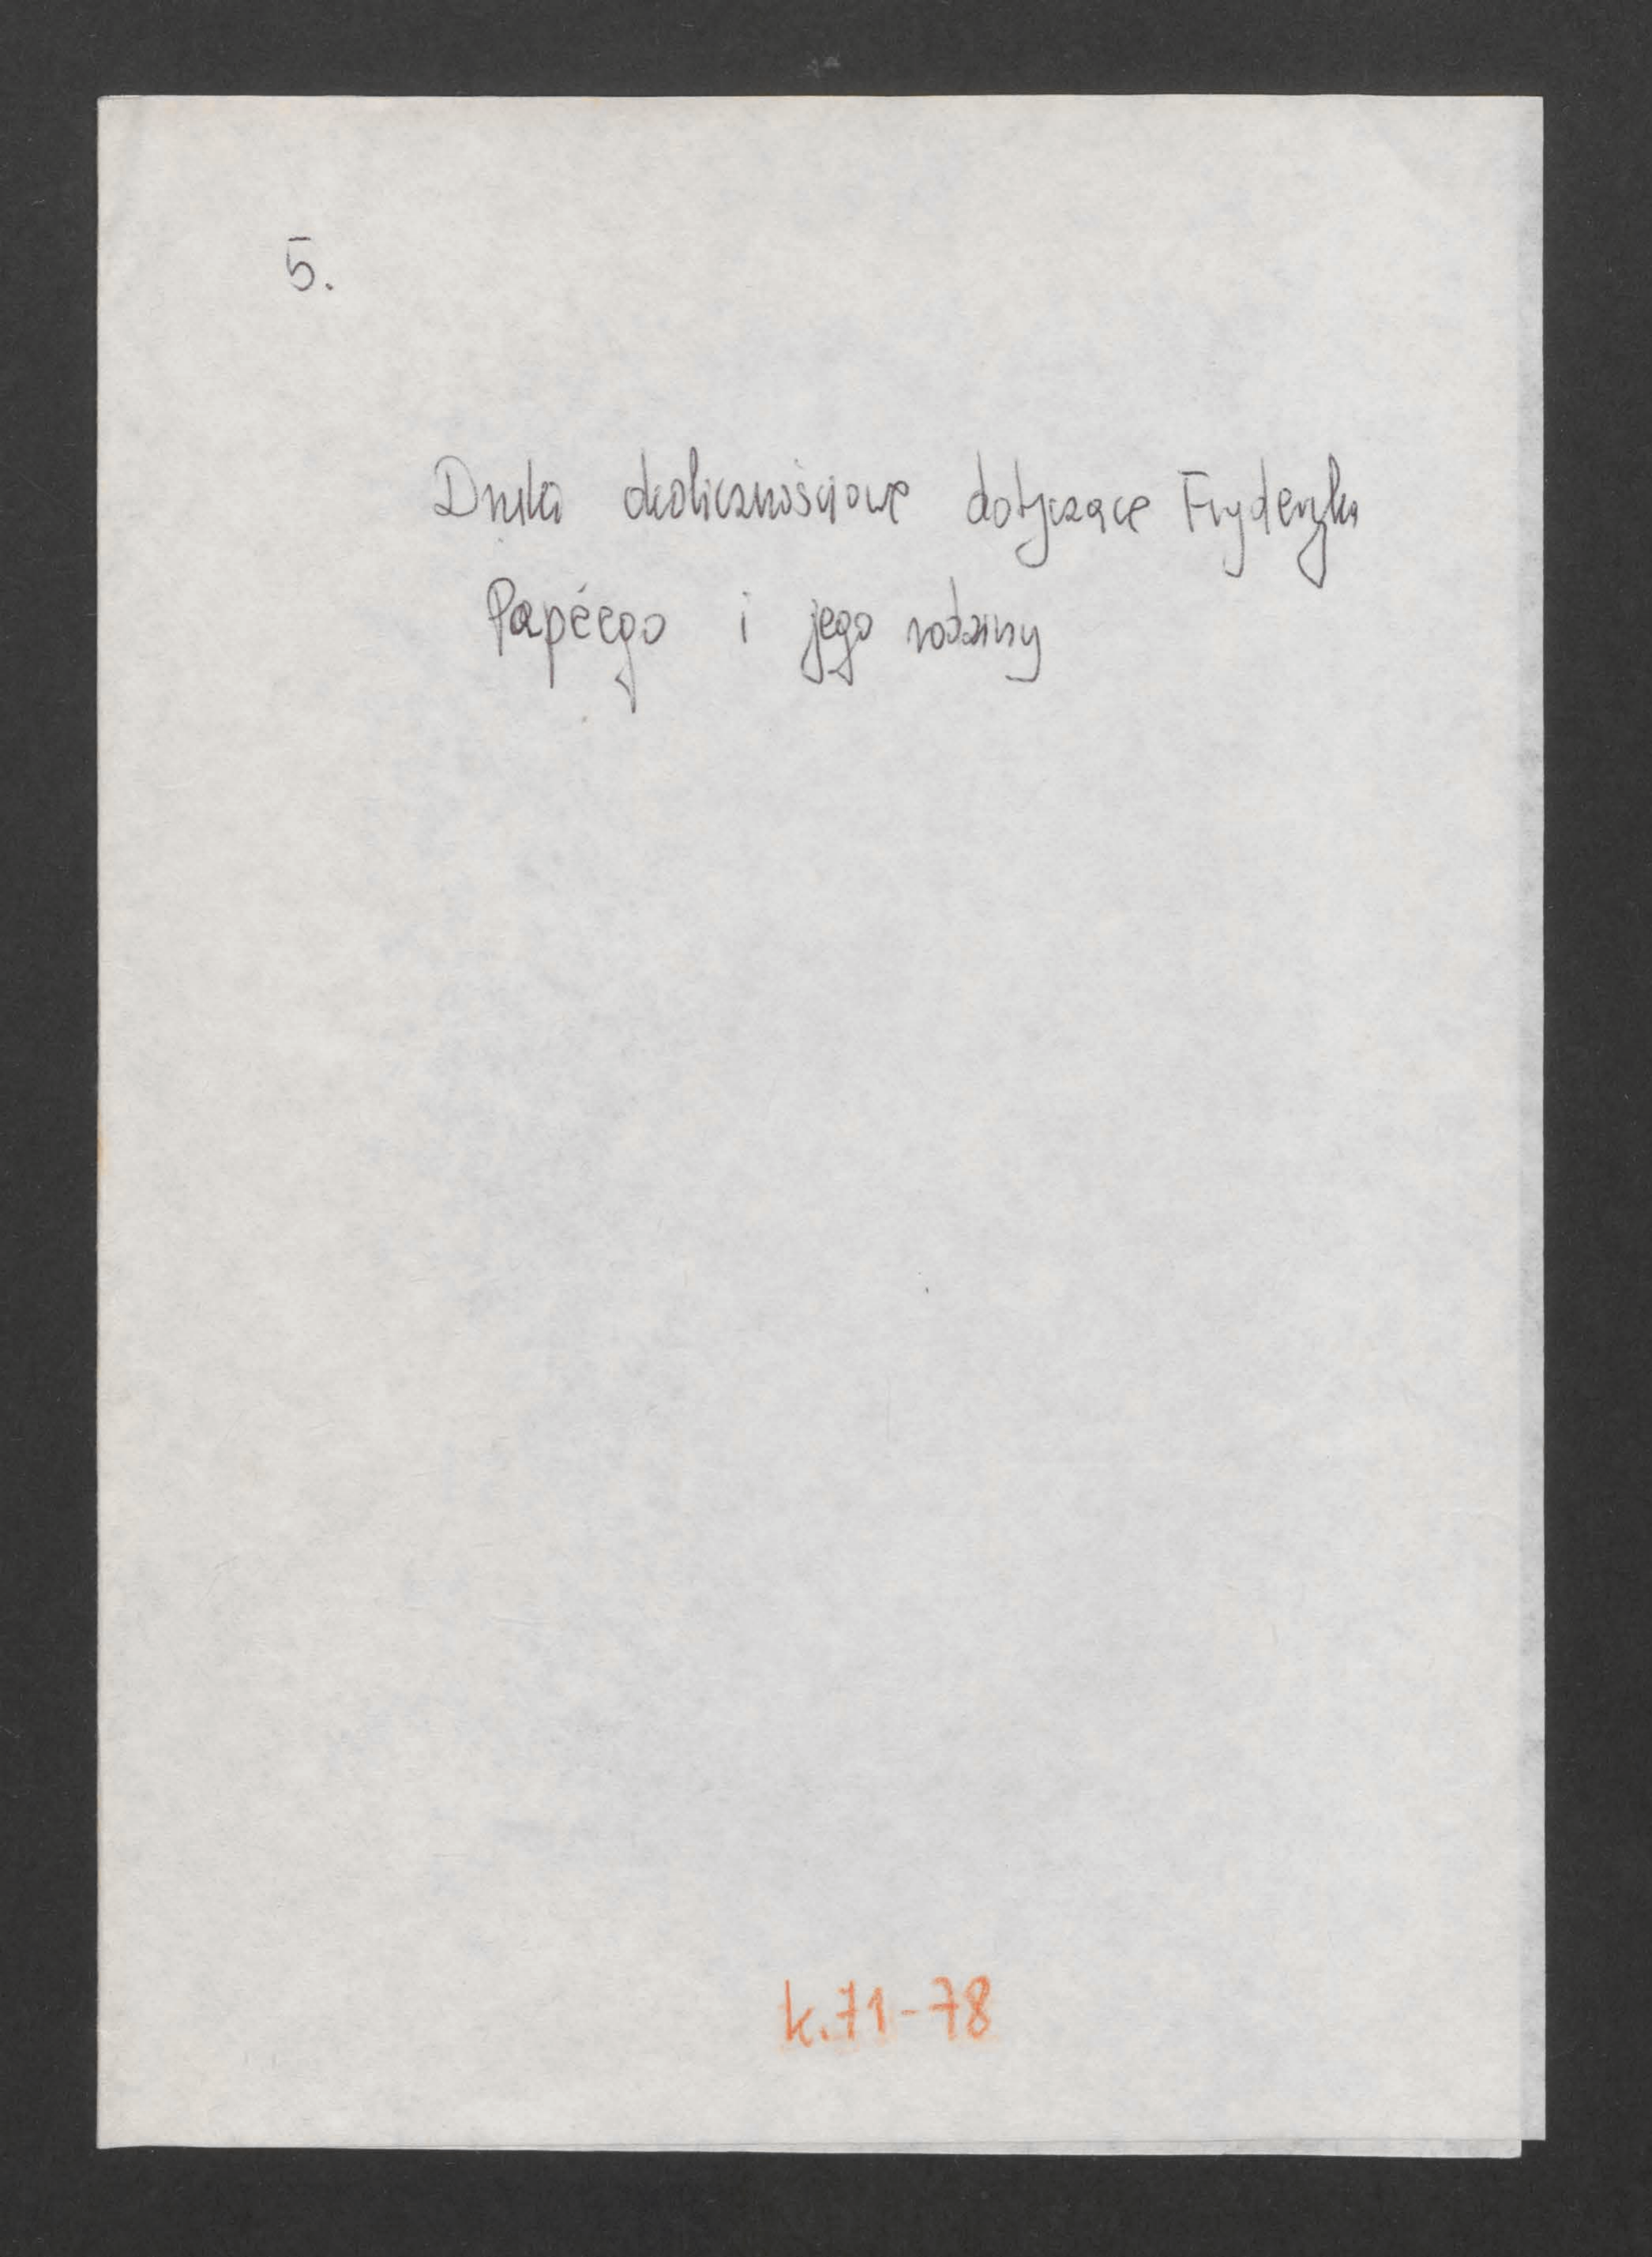 5.
Druki okolicznościowe dotyczące Fryderyka
Papéego i jego rodziny
k.71-78